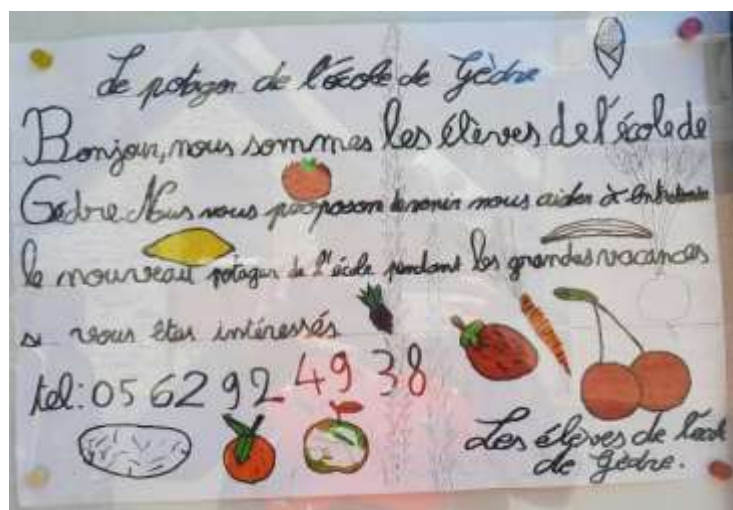 Le potager de l'école de Gèdre
Bonjour, nous sommes les élèves de l'école de
Gèdre. Nous vous proposon de venir nous aider à entretenir
le nouveau potager de l'école pendant les grandes vacances
si vous êtes intéressés
tel: 05 62 92 49 38
Les élèves de l'école
de Gèdre.